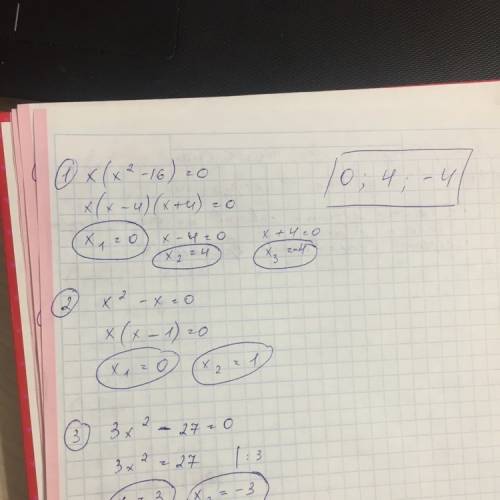 1 x(x² -16) = 0
0; 4; -4
x(x-4)(x+4) = 0
x₁ = 0 x-4=0 x+4=0
x₂ = 4 x₃ = -4
2 x² - x = 0
x(x-1) = 0
x₁ = 0 x₂ = 1
3 3x² - 27 = 0
3x² = 27 | : 3
= 3 x₂ = -3